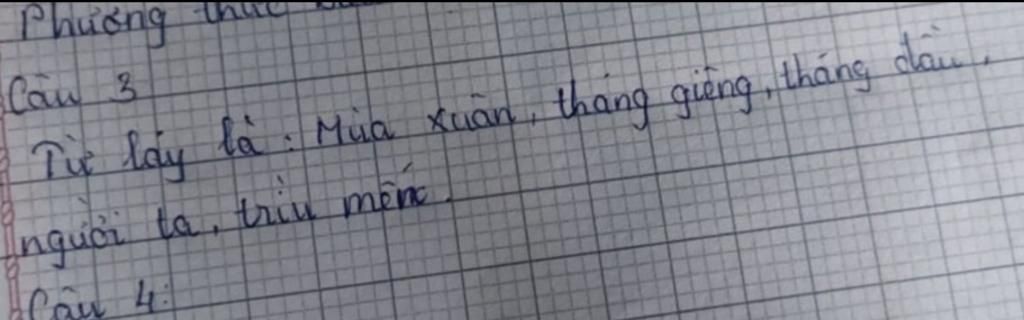 Phương thức
Câu 3
Từ láy là : Mùa xuân, tháng giêng, tháng đầu,
người ta, trìu mến.
Câu 4: